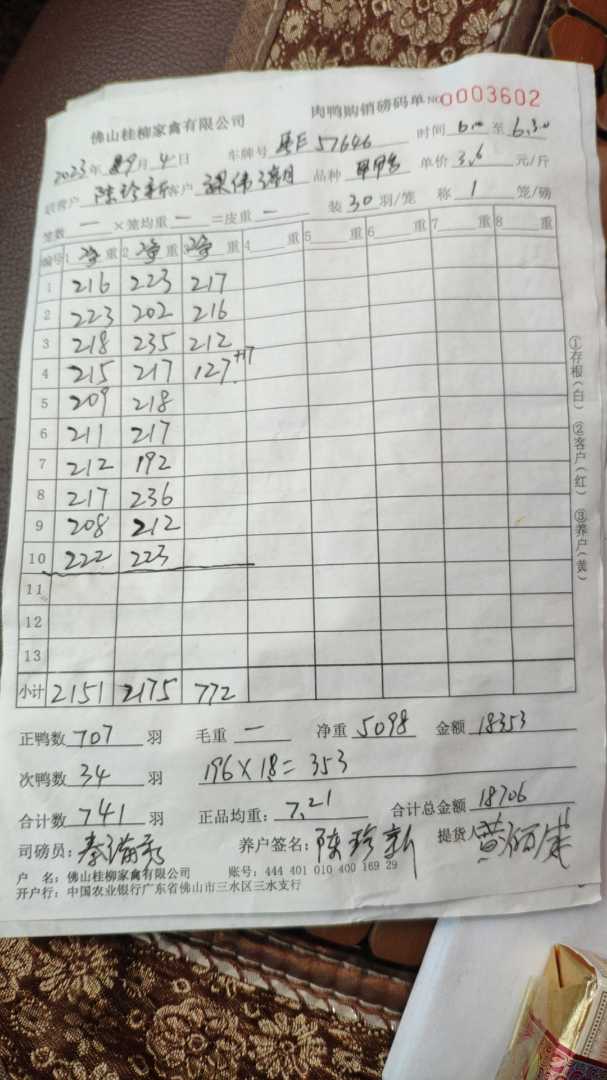 佛山桂柳家禽有限公司 肉鸭购销磅码单 NO 0003602
2023年 9月 4日 车牌号 57646 时间 6.00 至 6.30
农户 陈珍新 客户 品种 单价 3.6 元/斤
笼数 一 ×笼均重 一 =皮重 一 装 30 羽/笼 称 1 笼/磅
编号 1 净 重 2 净 重 3 净 重 4 重 5 重 6 重 7 重 8 重
1 216 223 217
2 223 202 216
3 218 235 212
4 215 217 127 +17
5 209 218
6 211 217
7 212 192
8 217 236
9 208 212
10 222 223
11
12
13
小计 2151 2175 772
正鸭数 707 羽 毛重 一 净重 5098 金额 18353
次鸭数 34 羽 196×1.8=353
合计数 741 羽 正品均重: 7.21 合计总金额 18706
司磅员: 养户签名: 陈珍新 提货人
户 名: 佛山桂柳家禽有限公司 账号: 444 401 010 400 169 29
开户行: 中国农业银行广东省佛山市三水区三水支行
①存根(白) ②客户(红) ③养户(黄)